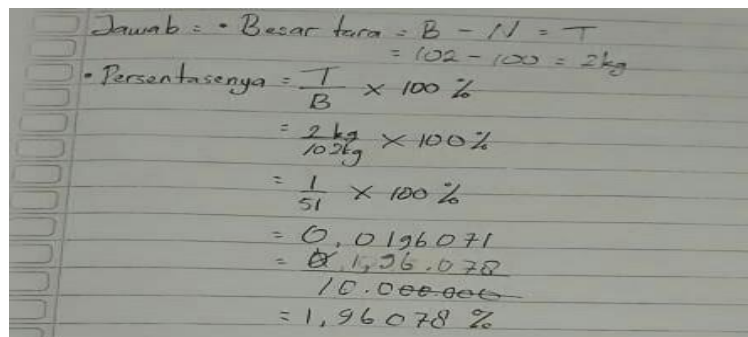 Jawab = • Besar tara = B - N = T
= 102 - 100 = 2kg
• Persentasenya = T/B × 100 %
= 2 kg/102kg × 100%
= 1/51 × 100 %
= 0,0196071
= 1,96.078
10.000.000
= 1,96078 %